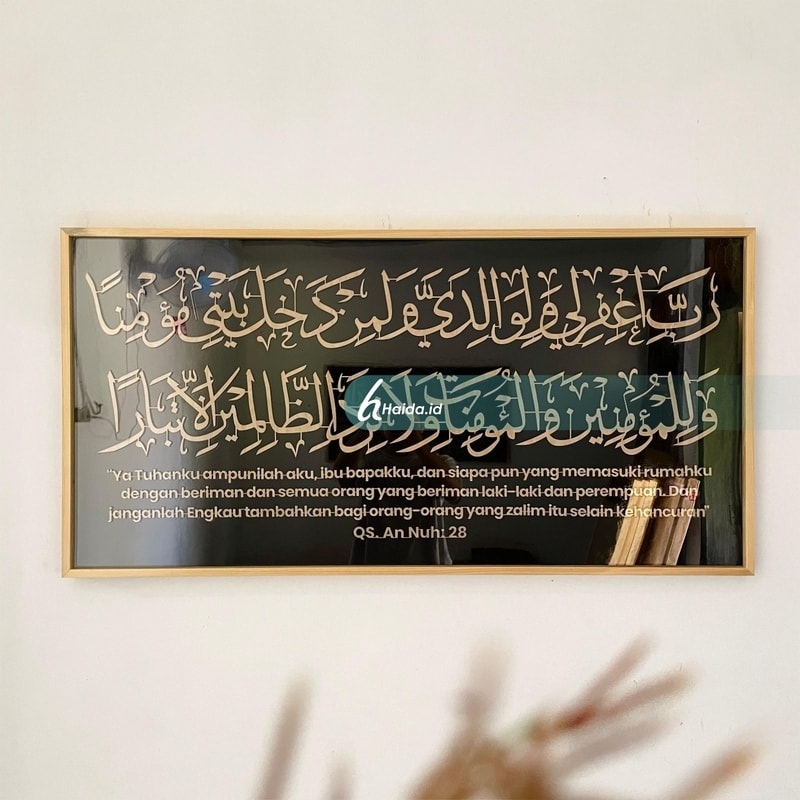 رَبِّ اغْفِرْ لِي وَلِوَالِدَيَّ وَلِمَنْ دَخَلَ بَيْتِيَ مُؤْمِنًا
وَلِلْمُؤْمِنِينَ وَالْمُؤْمِنَاتِ وَلَا تَزِدِ الظَّالِمِينَ إِلَّا تَبَارًا
Haida.id
"Ya Tuhanku ampunilah aku, ibu bapakku, dan siapa pun yang memasuki rumahku
dengan beriman dan semua orang yang beriman laki-laki dan perempuan. Dan
janganlah Engkau tambahkan bagi orang-orang yang zalim itu selain kehancuran"
QS. An Nuh: 28